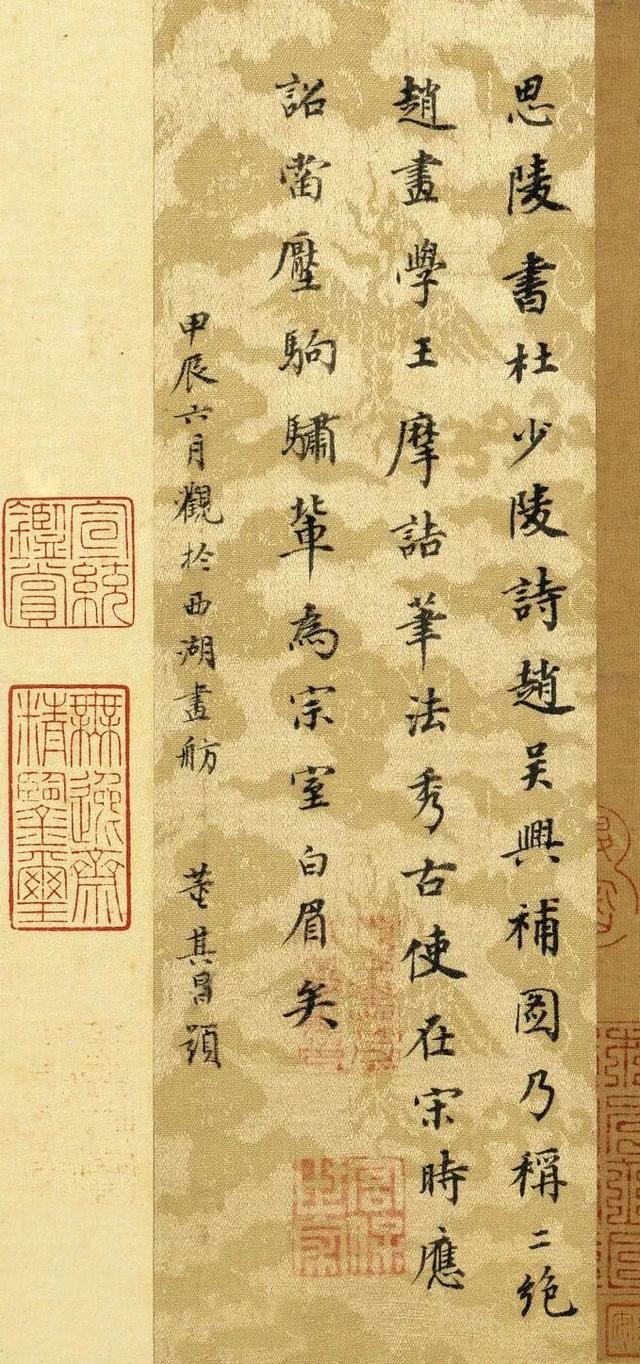 思陵書杜少陵詩趙吳興補圖乃稱二絕
趙畫學王摩詰筆法秀古使在宋時應
詔當壓駒驌輩為宗室白眉矣
甲辰六月觀於西湖畫舫 董其昌題
宣統鑑賞
無逸齋精鑒璽